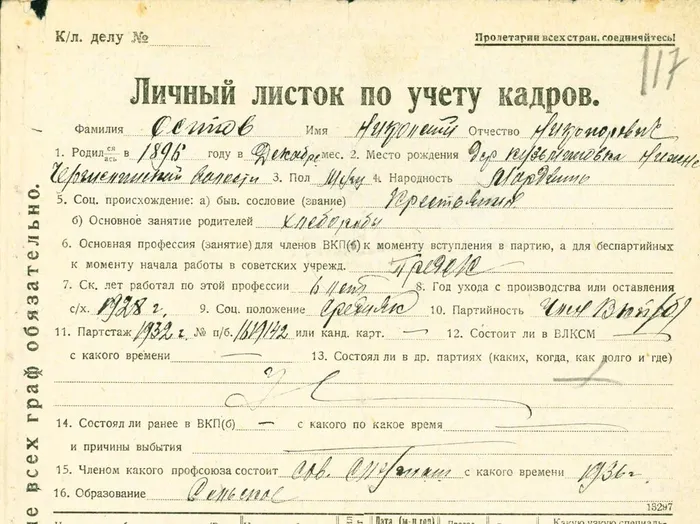 К/л. делу №
Пролетарии всех стран, соединяйтесь!
117
Личный листок по учету кадров.
Фамилия Осипов Имя Отчество Никонорович
1. Родился/ась в 1896 году в Декабре мес. 2. Место рождения Дер Кузьминовка
волости 3. Пол Муж 4. Народность Мордвин
5. Соц. происхождение: а) быв. сословие (звание) Крестьянин
б) Основное занятие родителей хлеборобы
6. Основная профессия (занятие) для членов ВКП(б) к моменту вступления в партию, а для беспартийных
к моменту начала работы в советских учрежд.
7. Ск. лет работал по этой профессии 6 лет 8. Год ухода с производства или оставления
с/х. 1928 г. 9. Соц. положение средняк 10. Партийность Член ВКП(б)
11. Партстаж 1932 г. № п/б. или канд. карт. — 12. Состоял ли в ВЛКСМ —
с какого времени — 13. Состоял ли в др. партиях (каких, когда, как долго и где)
14. Состоял ли ранее в ВКП(б) — с какого по какое время
и причины выбытия
15. Членом какого профсоюза состоит сов. с какого времени 1936 г.
16. Образование Сельское
13297
не всех граф обязательно.
Дата (м-ц год)
Какую узкую специаль-